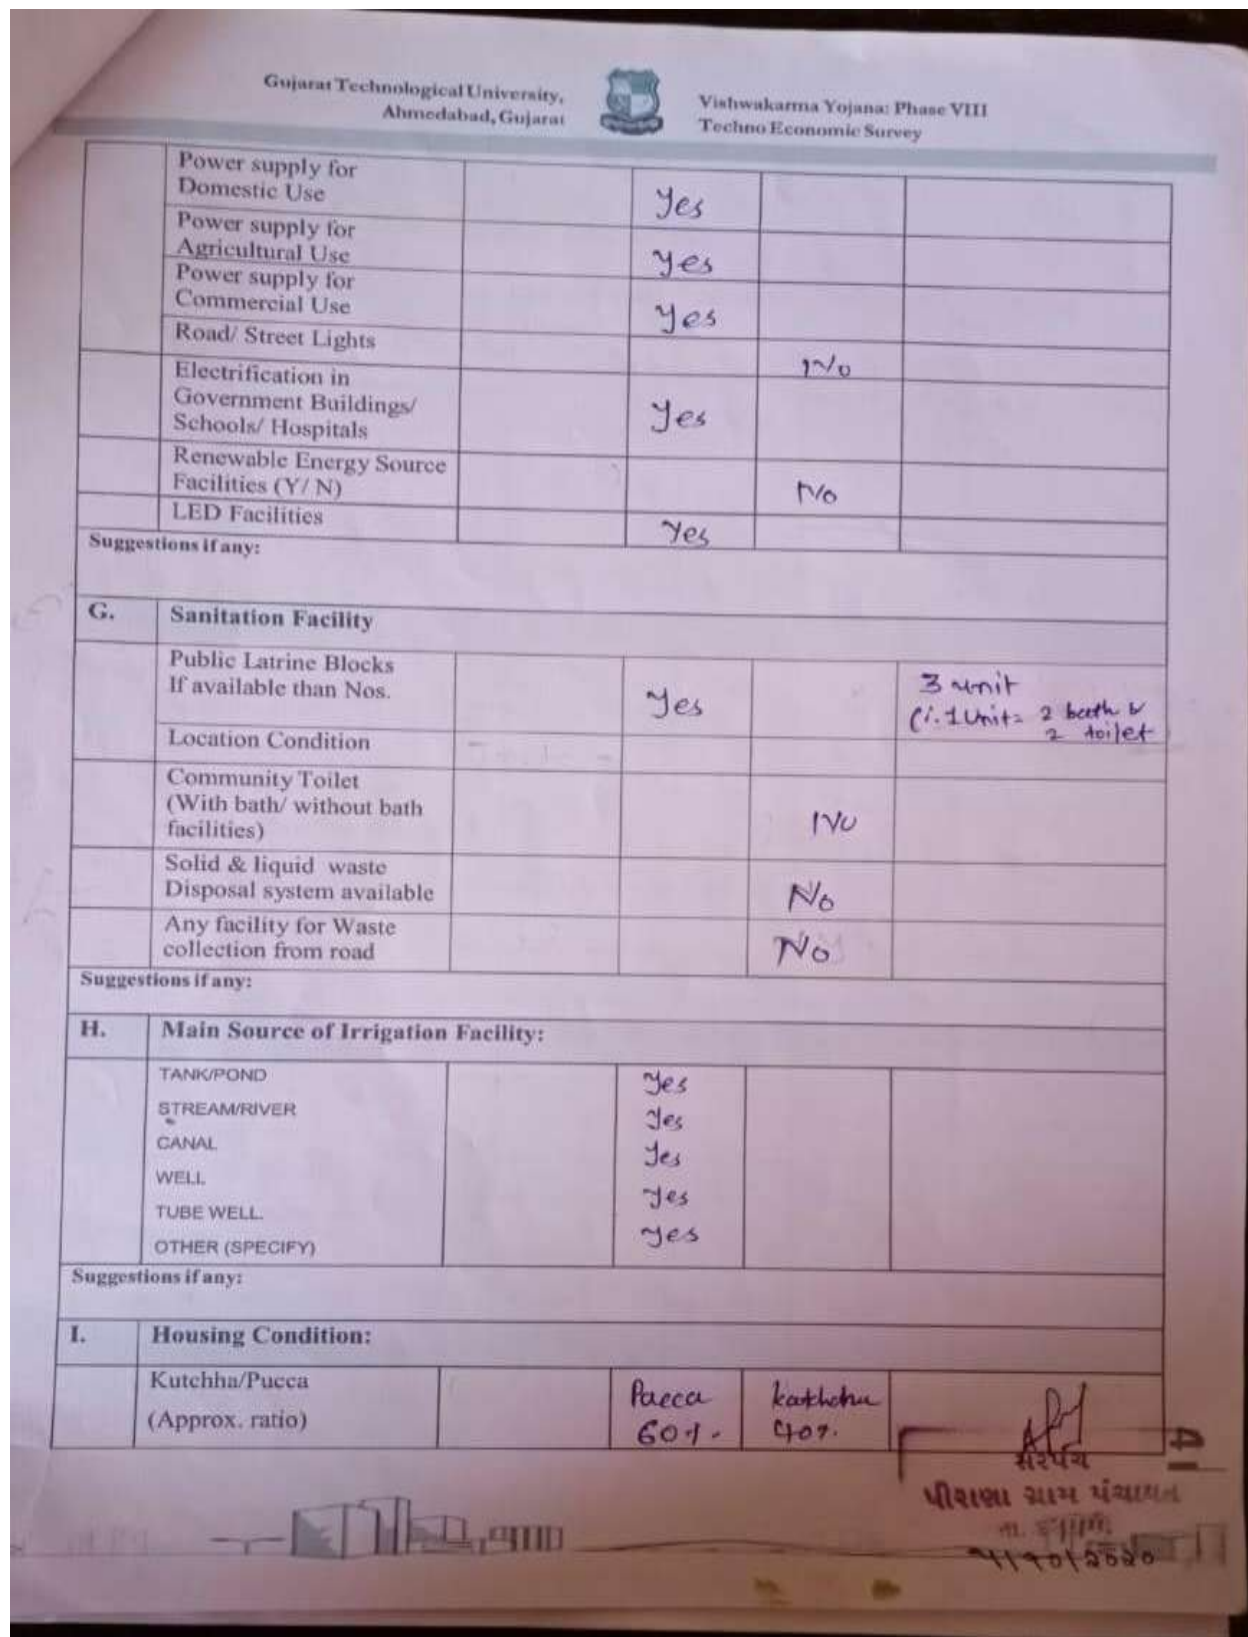 Gujarat Technological University,
Ahmedabad, Gujarat
Vishwakarma Yojana: Phase VIII
Techno Economic Survey
Power supply for
Domestic Use
Yes
Power supply for
Agricultural Use
Yes
Power supply for
Commercial Use
Yes
Road/ Street Lights
No
Electrification in
Government Buildings/
Schools/ Hospitals
Yes
Renewable Energy Source
Facilities (Y/ N)
No
LED Facilities
Yes
Suggestions if any:
G. Sanitation Facility
Public Latrine Blocks
If available than Nos.
Yes
3 unit
1 Unit = 2 bath &
2 toilet
Location Condition
Community Toilet
(With bath/ without bath
facilities)
No
Solid & liquid waste
Disposal system available
No
Any facility for Waste
collection from road
No
Suggestions if any:
H. Main Source of Irrigation Facility:
TANK/POND Yes
STREAM/RIVER Yes
CANAL Yes
WELL Yes
TUBE WELL Yes
OTHER (SPECIFY)
Suggestions if any:
I. Housing Condition:
Kutchha/Pucca
(Approx. ratio)
Pacca
60%.
40%.
41
સરપંચ
પીરાણા ગ્રામ પંચાયત
તા.
૫/૧૦/૨૦૨૦